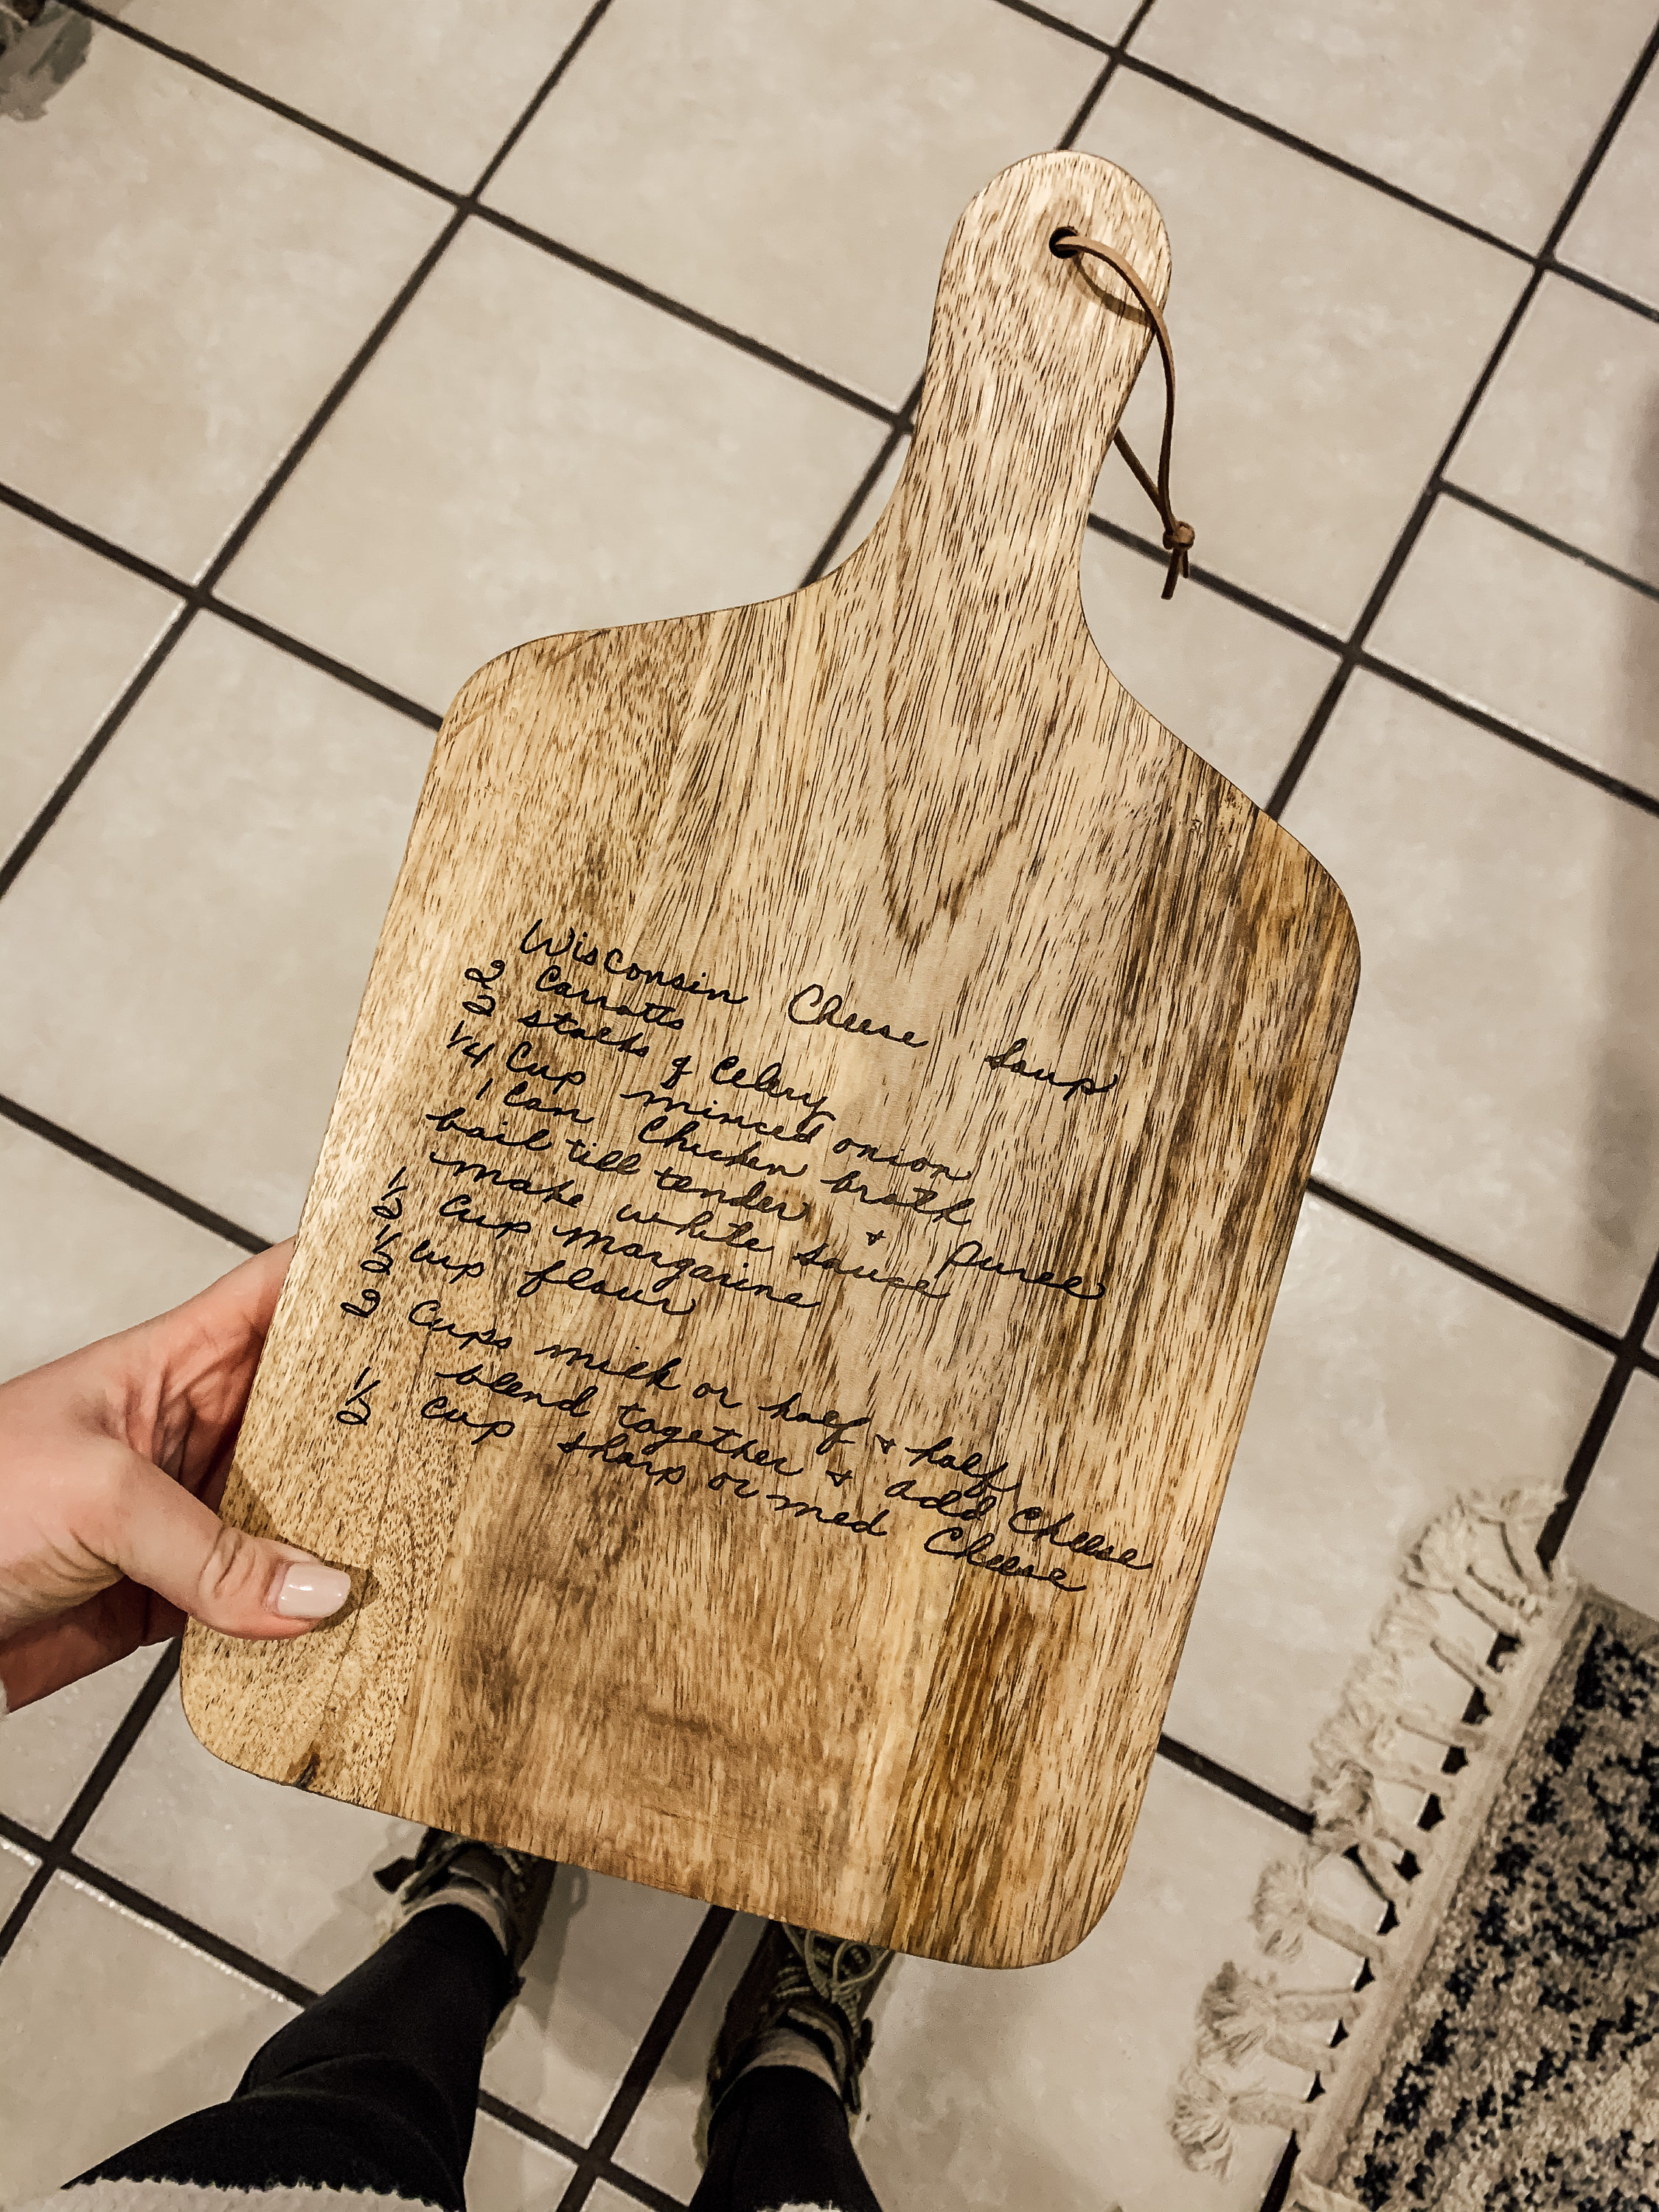 Wisconsin Cheese Soup
2 Carrotts
2 stalks of Celery
1/4 Cup minced onion
1 Can Chicken broth
boil till tender & Puree
make white sauce
1/2 Cup margarine
1/2 Cup flour
2 Cups milk or half & half
blend together & add Cheese
1/2 Cup sharp or med Cheese